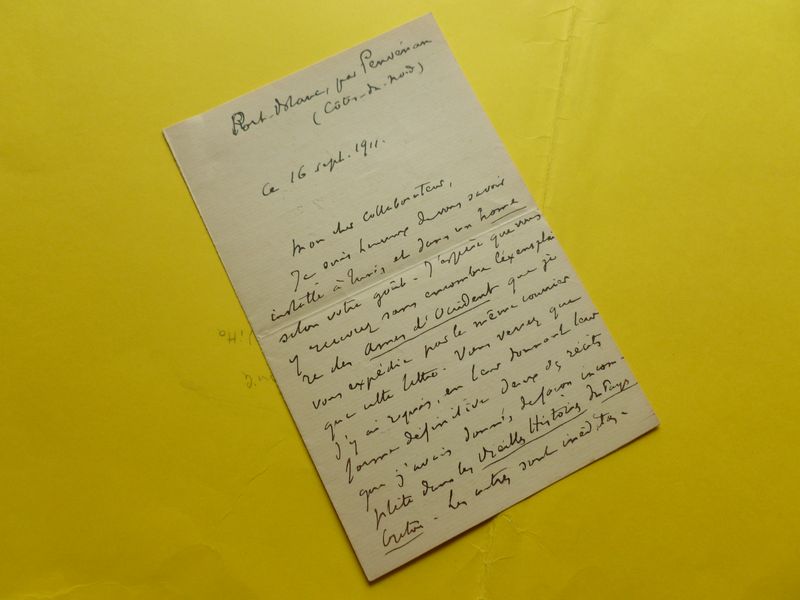 Port-Blanc, par Penvénan
(Côtes-du-Nord)
Ce 16 sept. 1911.
Mon cher collaborateur,
Je suis heureux de vous savoir
installé à Tunis et dans un home
selon votre goût. J'espère que vous
y recevrez sans encombre l'exemplai
re des Ames d'Occident que je
vous expédie par le même courrier
que cette lettre. Vous verrez que
j'y ai repris, en leur donnant leur
forme définitive deux des récits
que j'avais donnés de façon incom-
plète dans les Vieilles Histoires du Pays
breton. Les autres sont inédites.